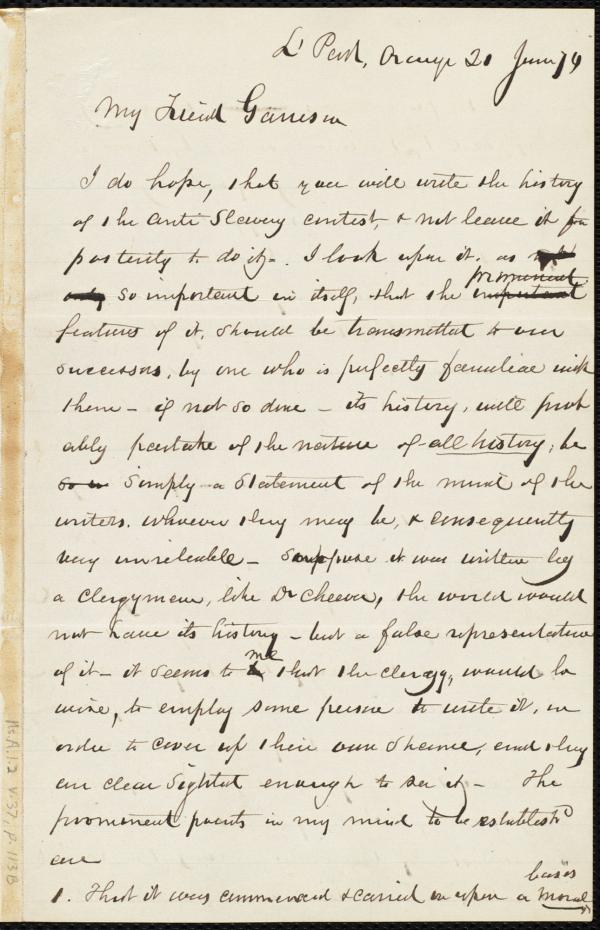 Ll Park, Orange 20 June 74
My Friend Garrison
I do hope, that you will write the history
of the Anti Slavery contest, & not leave it for
posterity to do it - . I look upon it, as
only so important in itself, that the important prominent
features of it, should be transmittat to our
successors, by one who is perfectly familiar with
them - if not so done - its history, will prob
ably partake of the nature of all history, be
so in simply a statement of the mind of the
writers, whoever they may be, & consequently
very unreleable - Suppose it was written by
a clergyman, like Dr Cheever, the world would
not have its history - but a false representation
of it - it seems to me that the clergy, would be
wise, to employ some person to write it, in
order to cover up their own shame, and they
are clear sightat enough to see it - The
prominent points in my mind to be establish'd
are
1. That it was commenced & carried on upon a moral basis
Ms.A.1.2 v.37, p.113B